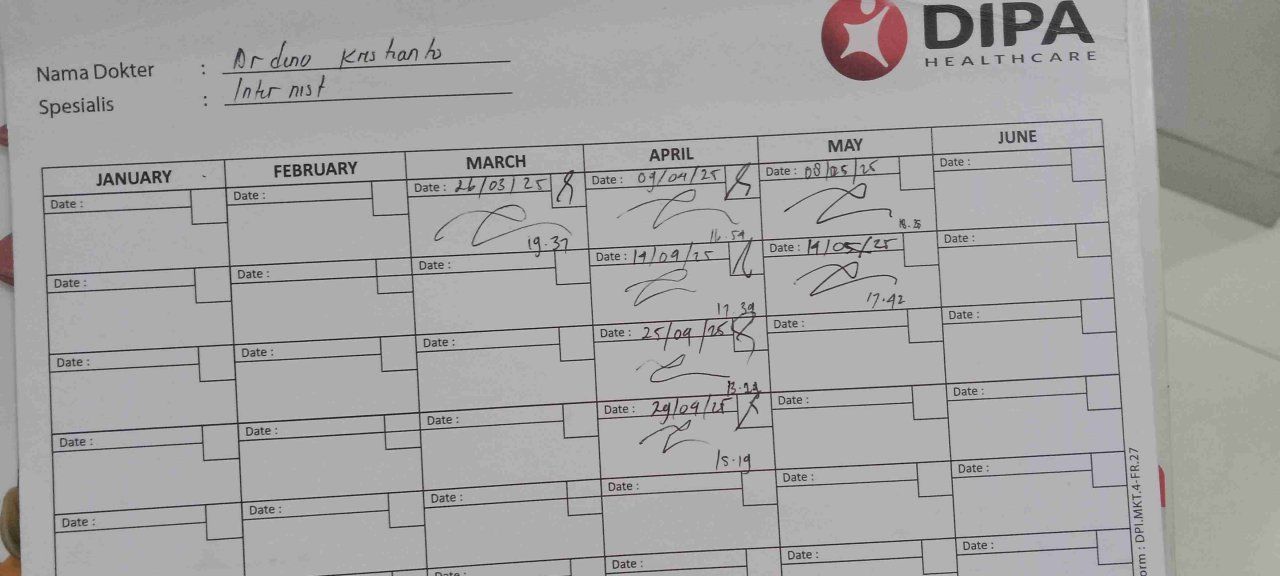 DIPA
HEALTHCARE
Nama Dokter : Dr dino Kristianto
Spesialis : Internist
JANUARY FEBRUARY MARCH APRIL MAY JUNE
Date : Date : Date : 26/03/25 Date : 09/04/25 Date : 08/05/25 Date :
19.37 16.54
Date : Date : Date : Date : 14/04/25 Date : 14/05/25 Date :
17.39 17.42
Date : Date : Date : Date : 25/04/25 Date : Date :
Date : Date : Date : Date : 29/04/25 Date : Date :
15.19
Date : Date : Date : Date : Date : Date :
Date : Date : Date : Date :
orm : DPI.MKT.4-FR.27